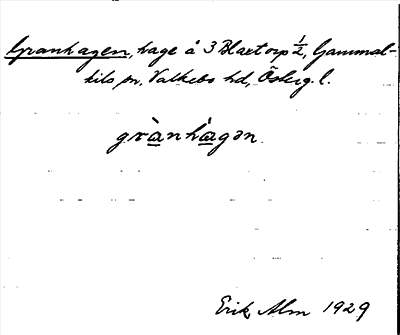 Granhagen, hage å 3 Blaxtorp 1/2, Gammal-
kils sn, Valkebo hd, Östergl.
grànhàgən
Erik Alm 1929